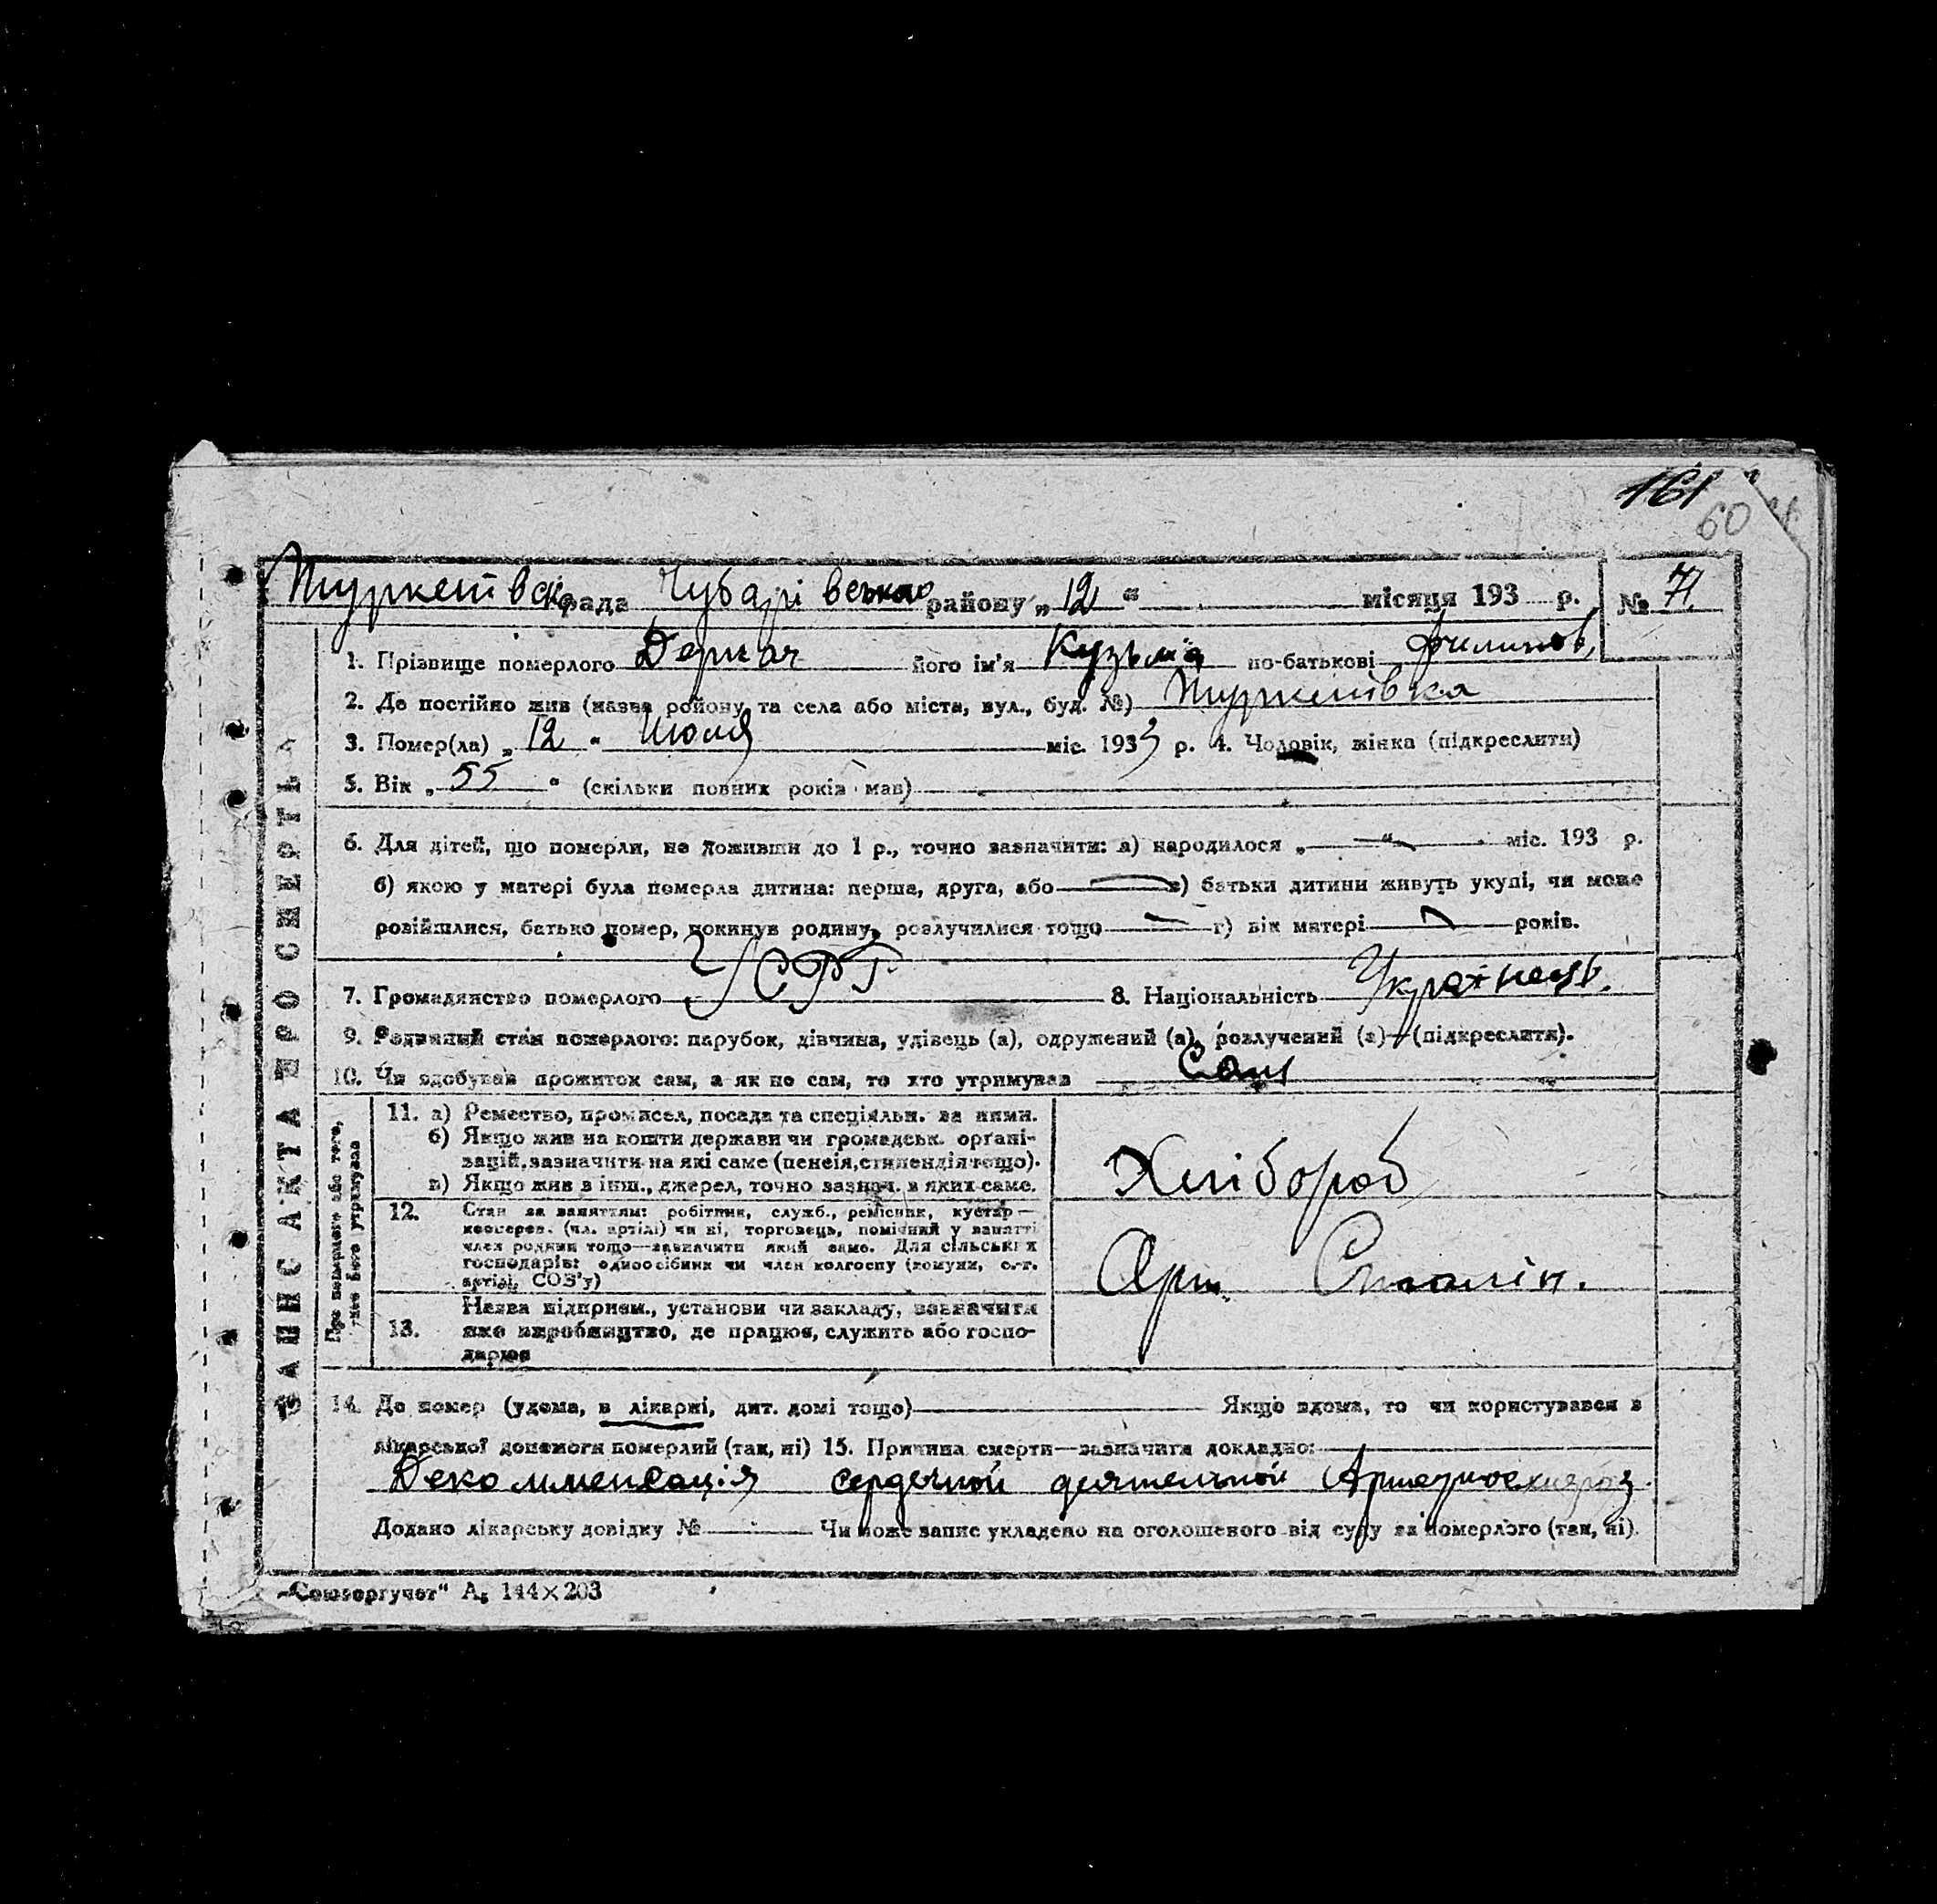 161
60
Туркенівськ рада Чубарівського району „12“ місяця 193 р. № 71
1. Прізвище померлого Деркач його ім'я Кузьма по-батькові Филипов,
2. Де постійно жив (назва району та села або міста, вул., буд. №) Туркенівка
3. Помер(ла) „12“ Июля міс. 1933 р. 4. Чоловік, жінка (підкреслити)
5. Вік „55“ (скільки повних років мав)
6. Для дітей, що померли, не доживши до 1 р., точно зазначити: а) народилося „ “ міс. 193 р.
б) якою у матері була померла дитина: перша, друга, або в) батьки дитини живуть укупі, чи може
розійшлися, батько помер, покинув родину, розлучилися тощо г) вік матері років.
7. Громадянство померлого УСРР 8. Національність Українець.
9. Родинний стан померлого: парубок, дівчина, удівець (а), одружений (а), розлучений (а)—(підкреслити).
10. Чи здобував прожиток сам, а як не сам, то хто утримував Сам
ЗАПИС АКТА ПРО СМЕРТЬ
Про померлого або того,
хто його утримував
11. а) Ремество, промисел, посада та спеціяльн. за ними.
б) Якщо жив на кошти держави чи громадськ. органі-
зацій, зазначити на які саме (пенсія, стипендія тощо).
в) Якщо жив в інш., джерел, точно зазнач. в яких саме.
Хлібороб
12. Стан за заняттям: робітник, служб., ремісник, кустар—
кооперов. (чл. артілі) чи ні, торговець, помічний у занятті
член родини тощо—зазначити який саме. Для сільських
господарів: одноосібник чи член колгоспу (комуни, с.-г.
артілі, СОЗ'у)
Арт. Сталін.
13. Назва підприєм., установи чи закладу, зазначити
яке виробництво, де працює, служить або госпо-
дарює
14. Де помер (удома, в лікарні, дит. домі тощо) Якщо вдома, то чи користувався з
лікарської допомоги померлий (так, ні) 15. Причина смерти—зазначити докладно:
Декомпенсація сердечной деятельной
Додано лікарську довідку № Чи може запис укладено на оголошеного від суду за померлого (так, ні).
„Союзоргучет“ А5 144×203